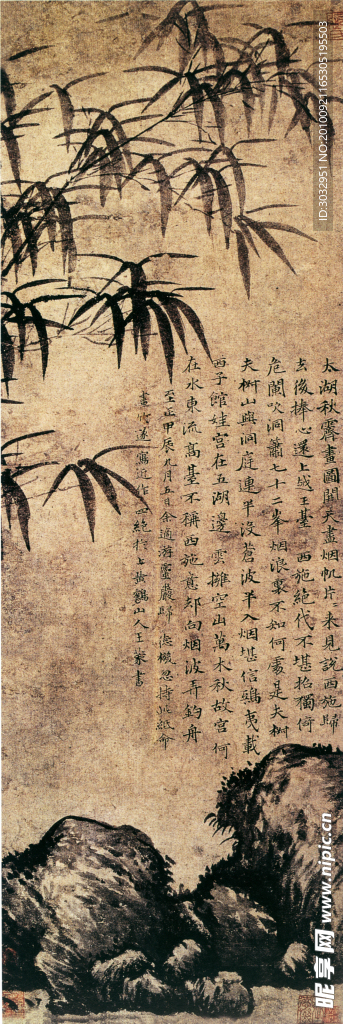 太湖秋霽畫圖開天盡烟帆片片來見說西施歸
去後捧心還上越王臺 西施絶代不堪招獨倚
危闌吹洞簫七十二峯烟浪裏不知何處是夫椒
夫椒山與洞庭連半沒蒼波半入烟堪信鴟夷載
西子館娃宫在五湖邊 雲擁空山萬木秋故宫何
在水東流高臺不稱西施意却向烟波弄釣舟
至正甲辰九月五日余適游靈巖歸 德機忽持此紙命
畫竹遂寫近作四絶於上黄鶴山人王蒙書
ID:3032951 NO:20100921165305195503
昵享网 www.nipic.cn